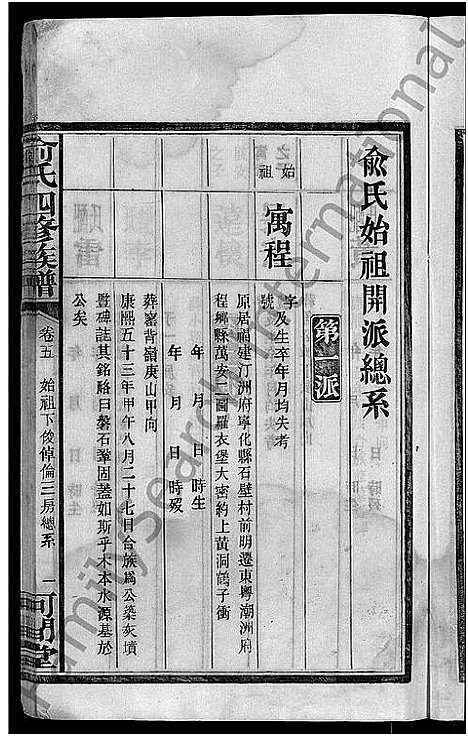 俞氏始祖開派總系
第一派
始祖
寓程
字
號
及生卒年月均失考
原居福建汀洲府寧化縣石壁村前明遷東粵潮洲府
程鄉縣萬安二圖羅衣堡大密約上黃洞鶴子衝
年 月 日 時生
年 月 日 時歿
葬窰背嶺庚山甲向
康熙五十三年甲午八月二十七日合族為公築灰墳
豎碑誌其銘略曰磐石鞏固蓋如斯乎木本水源基於
公矣
俞氏四修族譜
卷五 始祖下俊倬倫三房總系 一
可閒堂
FamilySearch International